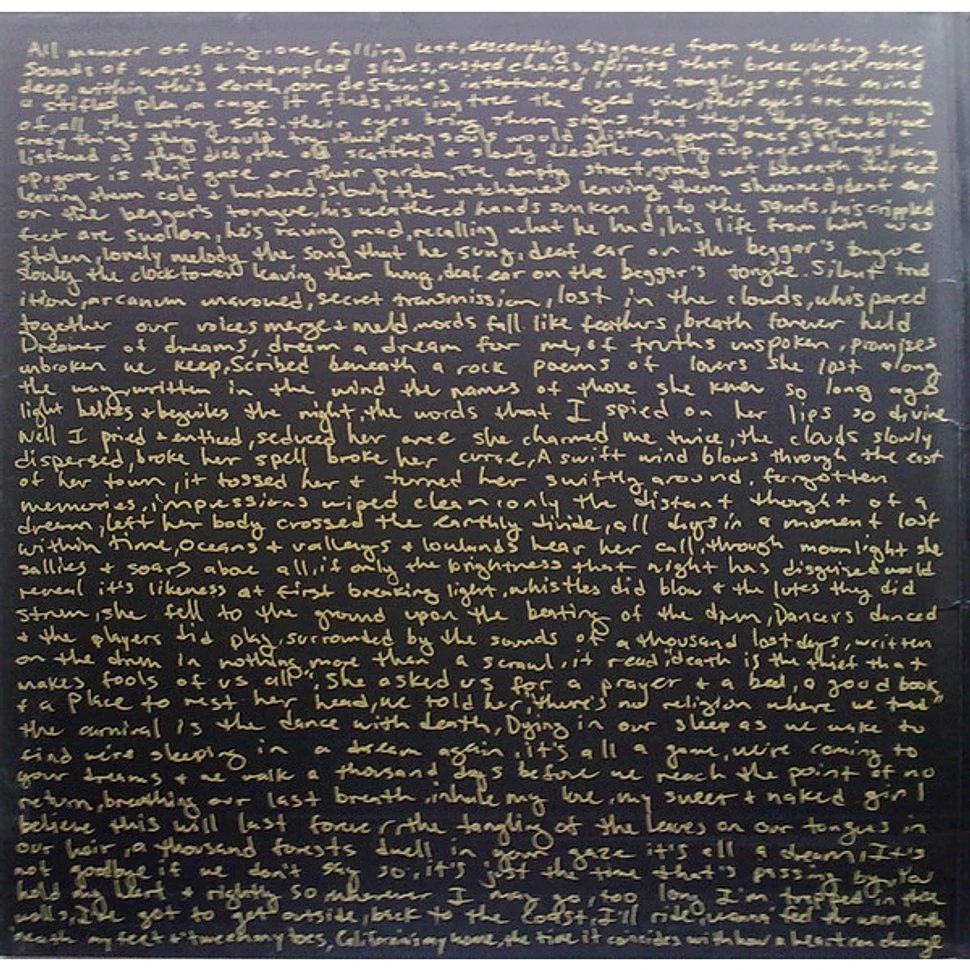 All manner of being, one falling leaf, descending disgraced from the winding tree
Sounds of waves & trampled slaves, rusted chains, spirits that break, we're rooted
deep within this earth, our destinies intertwined in the tanglings of the mind
a stifled plea, a cage it finds, the ivy tree the aged vine, their eyes are dreaming
of, all the watery seas, their eyes bring them signs that they're dying to believe
crazy things they would try, their very souls would glisten, young ones gathered &
listened as they died, the old scattered & slowly died the empty cup, eyes always being
up, gone is their gaze or their pardon, The empty street, ground wet beneath their feet
leaving them cold & hardened, slowly the watchtower leaving them shunned, deaf ear
on the beggar's tongue, his weathered hands sunken into the sands, his crippled
feet are swollen, he's raving mad, recalling what he had, his life from him was
stolen, lonely melody the song that he sung, deaf ear on the beggar's tongue
slowly the clocktower leaving them hung, deaf ear on the beggar's tongue. Silent trad
ition, arcanum unavowed, secret transmission, lost in the clouds, whispered
together our voices merge & meld, words fall like feathers, breath forever held
Dreamer of dreams, dream a dream for me, of truths unspoken, promises
unbroken we keep, Scribed beneath a rock poems of lovers she lost along
the way, written in the wind the names of those she knew so long ago
light belies & beguiles the night, the words that I spied on her lips so divine
Well I pried & enticed, seduced her once she charmed me twice, the clouds slowly
dispersed, broke her spell broke her curse, A swift wind blows through the east
of her town, it tossed her & turned her swiftly around, forgotten
memories, impressions wiped clean, only the distant thought of a
dream, left her body crossed the earthly divide, all days in a moment lost
within time, oceans & valleys & lowlands hear her call, through moonlight she
sallies & soars above all, if only the brightness that night has disguised would
reveal it's likeness at first breaking light, whistles did blow & the lutes they did
strum, she fell to the ground upon the beating of the drum, Dancers danced
& the players did play, surrounded by the sounds of a thousand lost days, written
on the drum in nothing more than a scrawl, it read "death is the thief that
makes fools of us all", She asked us for a prayer & a bed, a good book
& a place to rest her head, we told her, "there's no religion where we tread"
the carnival is the dance with death, Dying in our sleep as we wake to
find we're sleeping in a dream again, it's all a game, we're coming to
your dreams & we walk a thousand days before we reach the point of no
return, breathing our last breath, inhale my love, my sweet & naked girl I
believe this will last forever, the tangling of the leaves on our tongues in
our hair, a thousand forests dwell in your gaze it's all a dream, It's
not goodbye if we don't say so, it's just the time that's passing by, You
hold my heart & rightly so wherever I may go, too long I'm trapped in these
walls, I've got to get outside, back to the coast, I'll ride, wanna feel the warm earth
neath my feet & tween my toes, California's my home, the time it coincides with how a heart can change